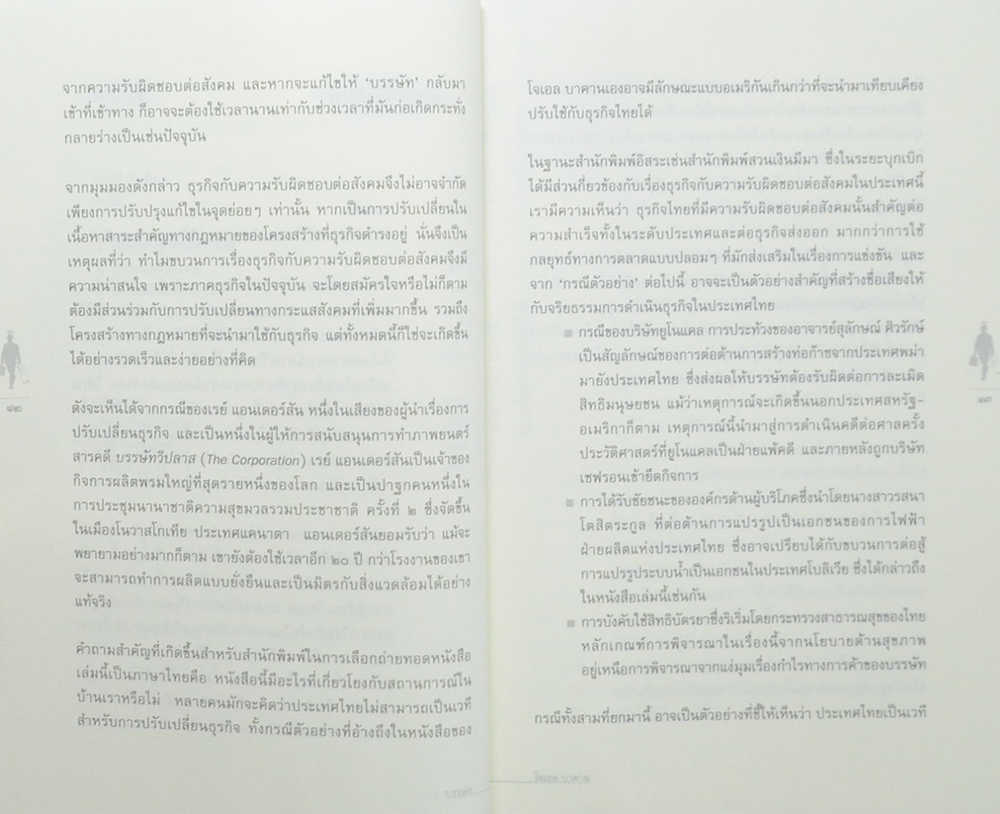 จากความรับผิดชอบต่อสังคม และหากจะแก้ไขให้ ‘บรรษัท’ กลับมา
เข้าที่เข้าทาง ก็อาจจะต้องใช้เวลานานเท่ากับช่วงเวลาที่มันก่อเกิดกระทั่ง
กลายร่างเป็นเช่นปัจจุบัน
จากมุมมองดังกล่าว ธุรกิจกับความรับผิดชอบต่อสังคมจึงไม่อาจจำกัด
เพียงการปรับปรุงแก้ไขในจุดย่อยๆ เท่านั้น หากเป็นการปรับเปลี่ยนใน
เนื้อหาสาระสำคัญทางกฎหมายของโครงสร้างที่ธุรกิจดำรงอยู่ นั่นจึงเป็น
เหตุผลที่ว่า ทำไมขบวนการเรื่องธุรกิจกับความรับผิดชอบต่อสังคมจึงมี
ความน่าสนใจ เพราะภาคธุรกิจในปัจจุบัน จะโดยสมัครใจหรือไม่ก็ตาม
ต้องมีส่วนร่วมกับการปรับเปลี่ยนทางกระแสสังคมที่เพิ่มมากขึ้น รวมถึง
โครงสร้างทางกฎหมายที่จะนำมาใช้กับธุรกิจ แต่ทั้งหมดนี้ก็ใช่จะเกิดขึ้น
ได้อย่างรวดเร็วและง่ายอย่างที่คิด
ดังจะเห็นได้จากกรณีของเรย์ แอนเดอร์สัน หนึ่งในเสียงของผู้นำเรื่องการ
ปรับเปลี่ยนธุรกิจ และเป็นหนึ่งในผู้ให้การสนับสนุนการทำภาพยนตร์
สารคดี บรรษัทวิปลาส (The Corporation) เรย์ แอนเดอร์สันเป็นเจ้าของ
กิจการผลิตพรมใหญ่ที่สุดรายหนึ่งของโลก และเป็นปาฐกคนหนึ่งใน
การประชุมนานาชาติความสุขมวลรวมประชาชาติ ครั้งที่ ๒ ซึ่งจัดขึ้น
ในเมืองโนวาสโกเทีย ประเทศแคนาดา แอนเดอร์สันยอมรับว่า แม้จะ
พยายามอย่างมากก็ตาม เขายังต้องใช้เวลาอีก ๒๐ ปี กว่าโรงงานของเขา
จะสามารถทำการผลิตแบบยั่งยืนและเป็นมิตรกับสิ่งแวดล้อมได้อย่าง
แท้จริง
คำถามสำคัญที่เกิดขึ้นสำหรับสำนักพิมพ์ในการเลือกถ่ายทอดหนังสือ
เล่มนี้เป็นภาษาไทยคือ หนังสือนี้มีอะไรที่เกี่ยวโยงกับสถานการณ์ใน
บ้านเราหรือไม่ หลายคนมักจะคิดว่าประเทศไทยไม่สามารถเป็นเวที
สำหรับการปรับเปลี่ยนธุรกิจ ทั้งกรณีตัวอย่างที่อ้างถึงในหนังสือของ
๑๒
บรรษัท
โจเอล บาคานเองอาจมีลักษณะแบบอเมริกันเกินกว่าที่จะนำมาเทียบเคียง
ปรับใช้กับธุรกิจไทยได้
ในฐานะสำนักพิมพ์อิสระเช่นสำนักพิมพ์สวนเงินมีมา ซึ่งในระยะบุกเบิก
ได้มีส่วนเกี่ยวข้องกับเรื่องธุรกิจกับความรับผิดชอบต่อสังคมในประเทศนี้
เรามีความเห็นว่า ธุรกิจไทยที่มีความรับผิดชอบต่อสังคมนั้นสำคัญต่อ
ความสำเร็จทั้งในระดับประเทศและต่อธุรกิจส่งออก มากกว่าการใช้
กลยุทธ์ทางการตลาดแบบปลอมๆ ที่มักส่งเสริมในเรื่องการแข่งขัน และ
จาก ‘กรณีตัวอย่าง’ ต่อไปนี้ อาจจะเป็นตัวอย่างสำคัญที่สร้างชื่อเสียงให้
กับจริยธรรมการดำเนินธุรกิจในประเทศไทย
■ กรณีของบริษัทยูโนแคล การประท้วงของอาจารย์สุลักษณ์ ศิวรักษ์
เป็นสัญลักษณ์ของการต่อต้านการสร้างท่อก๊าซจากประเทศพม่า
มายังประเทศไทย ซึ่งส่งผลให้บริษัทต้องรับผิดต่อการละเมิด
สิทธิมนุษยชน แม้ว่าเหตุการณ์จะเกิดขึ้นนอกประเทศสหรัฐ-
อเมริกาก็ตาม เหตุการณ์นี้นำมาสู่การดำเนินคดีต่อศาลครั้ง
ประวัติศาสตร์ที่ยูโนแคลเป็นฝ่ายแพ้คดี และภายหลังถูกบริษัท
เชฟรอนเข้ายึดกิจการ
■ การได้รับชัยชนะขององค์กรด้านผู้บริโภคซึ่งนำโดยนางสาวรสนา
โตสิตระกูล ที่ต่อต้านการแปรรูปเป็นเอกชนของการไฟฟ้า
ฝ่ายผลิตแห่งประเทศไทย ซึ่งอาจเปรียบได้กับขบวนการต่อสู้
การแปรรูประบบน้ำเป็นเอกชนในประเทศโบลิเวีย ซึ่งได้กล่าวถึง
ในหนังสือเล่มนี้เช่นกัน
■ การบังคับใช้สิทธิบัตรยาซึ่งริเริ่มโดยกระทรวงสาธารณสุขของไทย
หลักเกณฑ์การพิจารณาในเรื่องนี้จากนโยบายด้านสุขภาพ
อยู่เหนือการพิจารณาจากแง่มุมเรื่องกำไรทางการค้าของบรรษัท
กรณีทั้งสามที่ยกมานี้ อาจเป็นตัวอย่างที่ชี้ให้เห็นว่า ประเทศไทยเป็นเวที
๑๓
โจเอล บาคาน